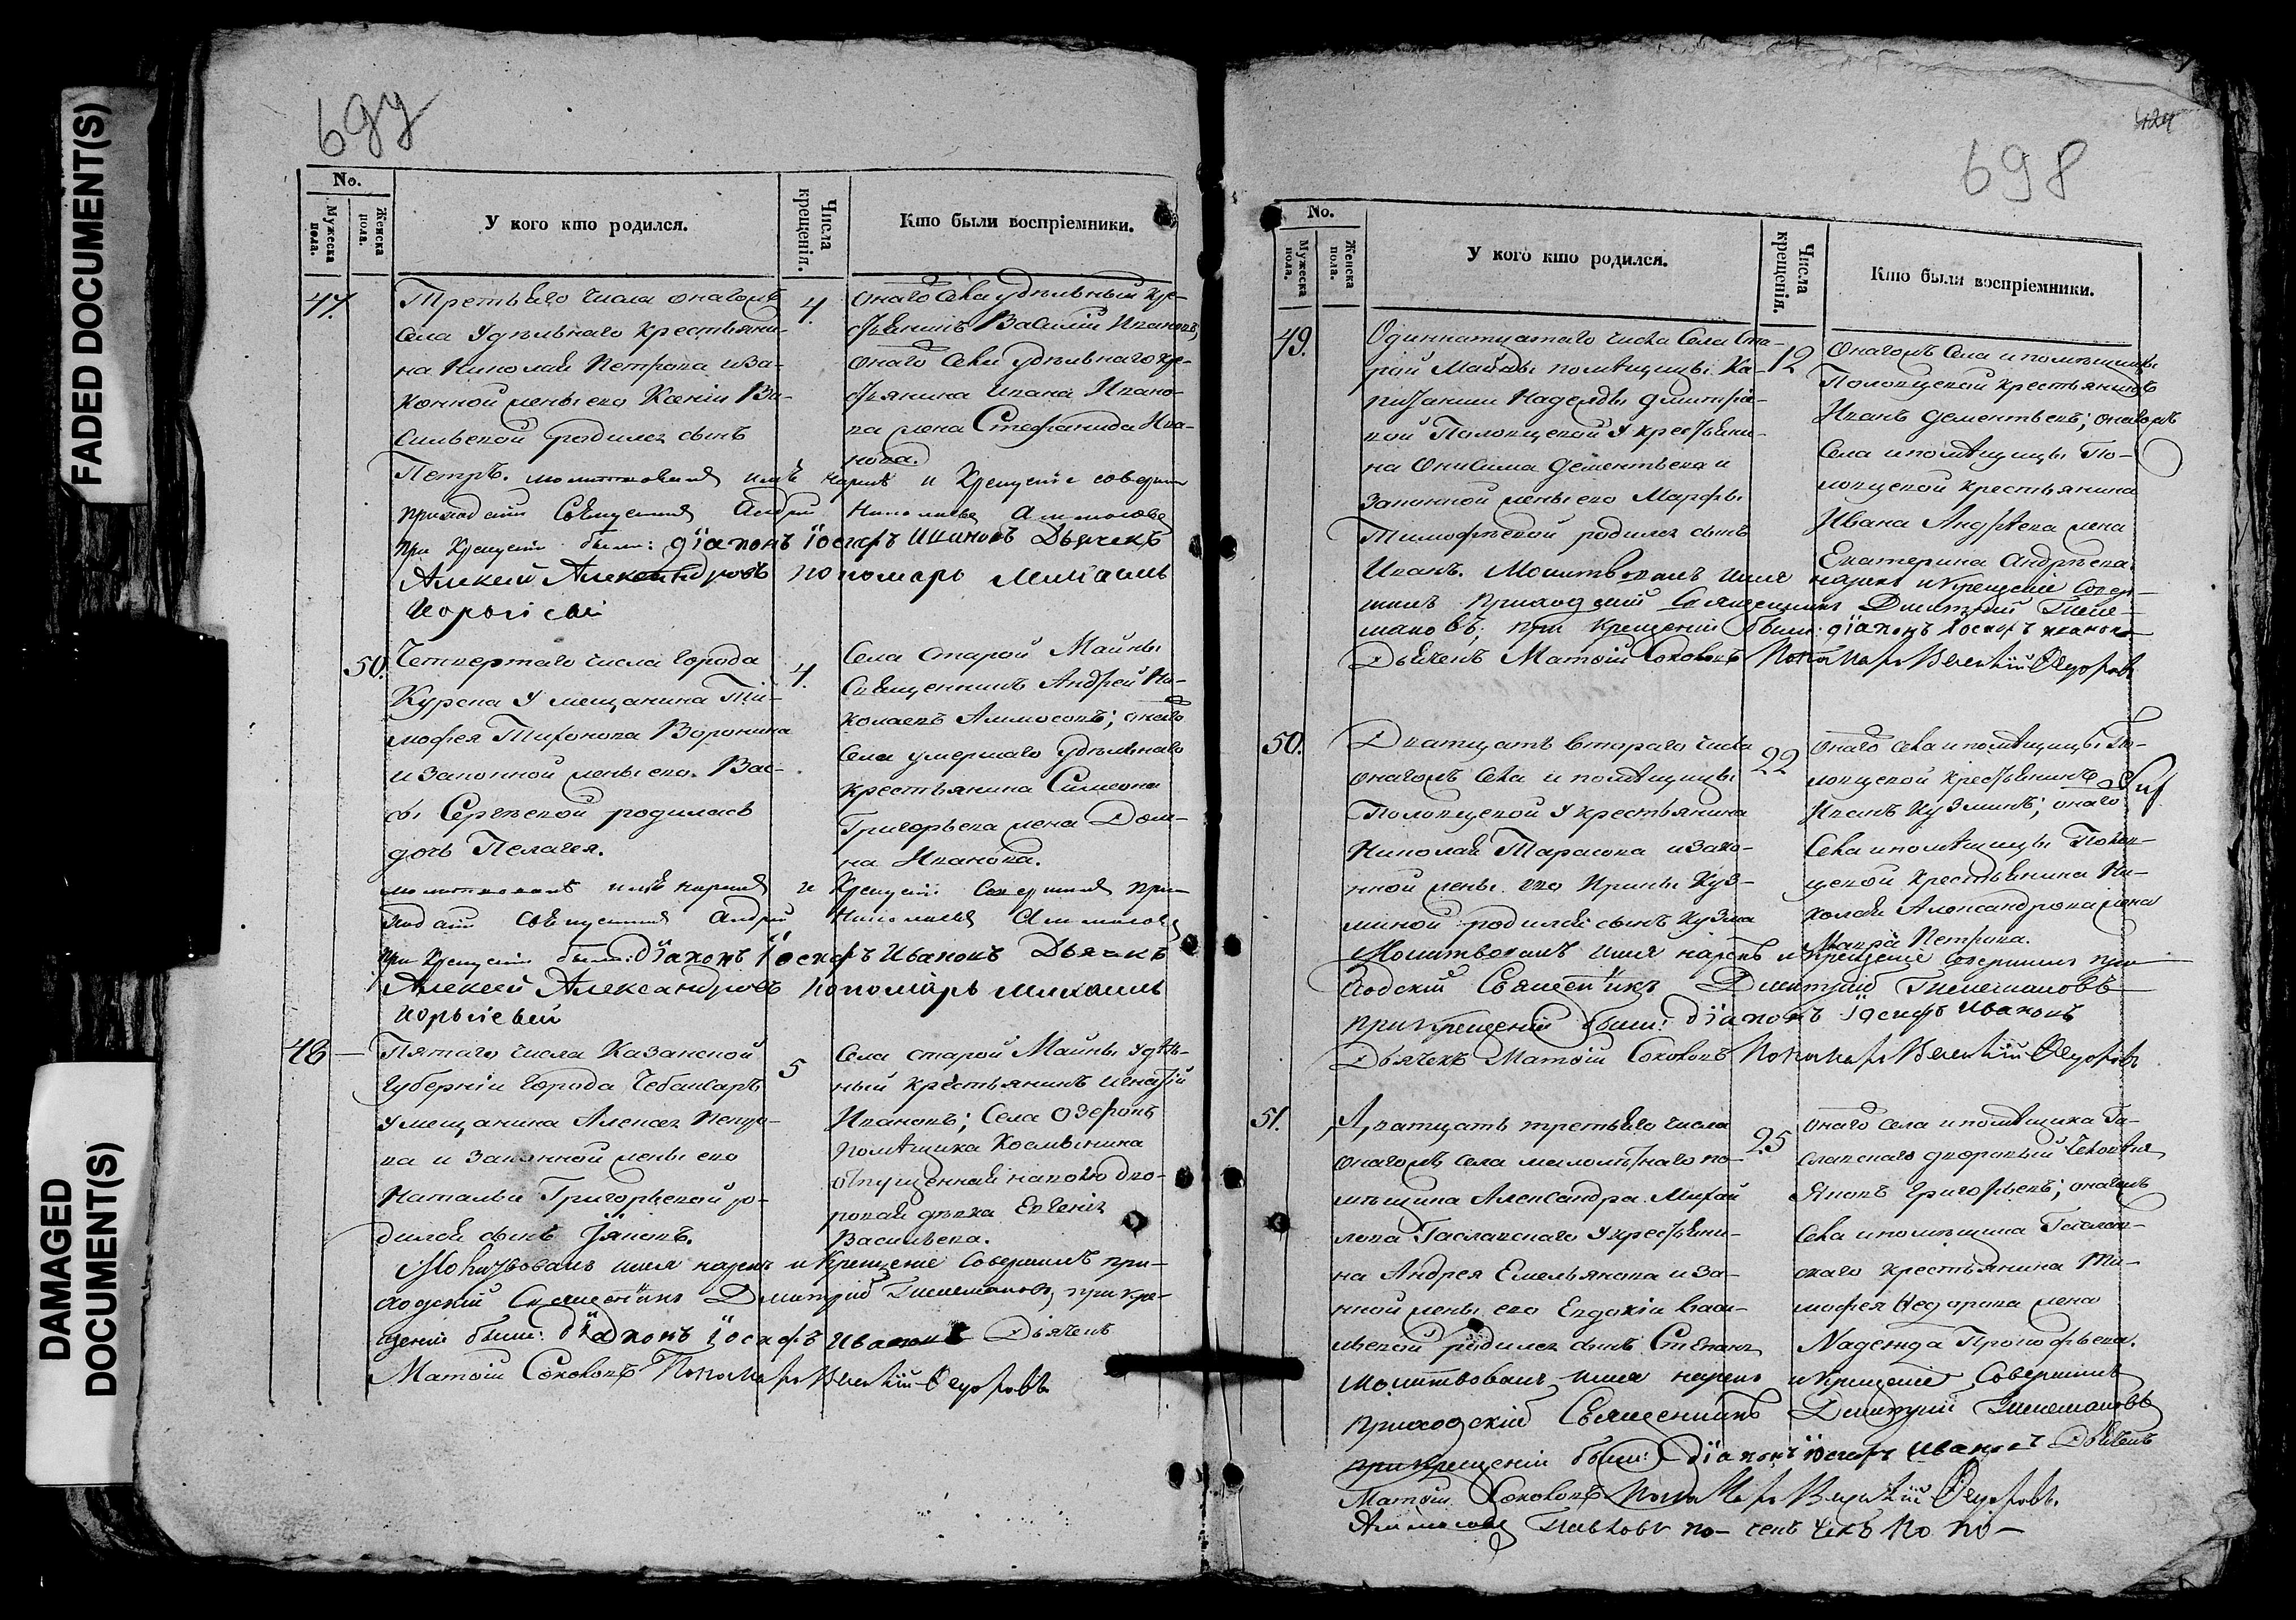 FADED DOCUMENT(S)
DAMAGED
DOCUMENT(S)
697
No.
Мужеска пола.
Женска пола.
У кого кто родился.
Числа крещенія.
Кто были воспріемники.
47.
Третьяго числа онагожъ
села Удѣльнаго крестьяни-
на Николая Петрова и за-
конной жены его Ксеніи Ва-
сильевой родился сынъ
Петръ.
4.
онаго села удѣльный кре-
стьянинъ Василій Ивановъ,
онаго села удѣльнаго кре-
стьянина Ивана Ивано-
ва жена Стефанида Ива-
нова.
молитвовалъ имя нарекъ и Крещеніе соверши
приходскій Священникъ Андрей Николаевъ Аммосовъ
при Крещеніи были: діаконъ Іосифъ Ивановъ Дьячекъ
Алексей Александровъ пономарь Михаилъ
50.
Четвертаго числа города
Курска у мещанина Ти-
мофея Тихонова Воронина
и законной жены его Вас-
сы Сергѣевой родилась
дочь Пелагея.
4.
Села Старой Майны
Священникъ Андрей Ни-
колаевъ Аммосовъ; онаго
села умершаго удѣльнаго
крестьянина Симеона
Григорьева жена Дом-
на Иванова.
молитвовалъ имя нарекъ и Крещеніе Совершилъ при-
ходскій Священникъ Андрей Николаевъ Аммосовъ
при Крещеніи были: діаконъ Іосифъ Ивановъ Дьячекъ
Алексей Александровъ пономарь Михаилъ
48
Пятаго числа Казанской
Губерніи города Чебаксаръ
у мещанина Алексея
и законной жены его
Натальи Григорьевой ро-
дился сынъ
5
Села Старой Майны удѣль-
ный крестьянинъ Игнатій
Ивановъ; Села Озерокъ
помѣщика
отпущенная на волю дво-
ровая дѣвка Евгенія
Васильева.
Молитвовалъ имя нарекъ и Крещеніе Совершилъ при-
ходскій Священникъ Дмитрій при кре-
щеніи были: діаконъ Іосифъ Ивановъ Дьячекъ
Матѳій Соколовъ Пономарь Ѳедоровъ
698
No.
Мужеска пола.
Женска пола.
У кого кто родился.
Числа крещенія.
Кто были воспріемники.
49.
Одиннатцатаго числа Села Ста-
рой Майны помѣщицы Ка-
питанши Надежды Дмитріе-
вой Половцевой у крестьяни-
на Онисима Дементьева и
законной жены его Марфы
Тимофѣевой родился сынъ
Иванъ.
12
Онагожъ Села и помѣщицы
Половцевой крестьянинъ
Иванъ Дементьевъ; онагожъ
Села и помѣщицы По-
ловцевой крестьянина
Ивана Андрѣева жена
Екатерина Андрѣева.
Молитвовалъ имя нарекъ и Крещеніе Совер-
шилъ приходскій Священникъ Дмитрій
при крещеніи были: діаконъ Іосифъ Ивановъ
Дьячекъ Матѳій Соколовъ Пономарь Ѳедоровъ
50.
Дватцать втораго числа
онагожъ села и помѣщицы
Половцевой у крестьянина
Николая Тарасова и зако-
нной жены его Ирины Куз-
миной родился сынъ Кузма
22
онаго села и помѣщицы По-
ловцевой крестьянинъ
Иванъ Кузминъ; онаго
Села и помѣщицы Полов-
цевой крестьянина Ни-
колая Александрова жена
Мавра Петрова.
Молитвовалъ имя нарекъ и Крещеніе Совершилъ при-
ходскій Священникъ Дмитрій
при крещеніи были: діаконъ Іосифъ Ивановъ
Дьячекъ Матѳій Соколовъ Пономарь Ѳедоровъ
51.
Дватцать третьяго числа
онагожъ села малолѣтнаго по-
мѣщика Александра Михай
лова Гаславскаго у крестьяни-
на Андрея Емельянова и за-
нной жены его Евдокіи Васи-
льевой родился сынъ Степанъ
25
онаго села и помѣщика Га-
славскаго дворовый человѣкъ
Яковъ Григорьевъ; онагожъ
Села и помѣщика Гаслав-
скаго крестьянина Ти-
мофея Ѳедорова жена
Надежда Прокофьева.
Молитвовалъ имя нарекъ и Крещеніе Совершилъ
приходскій Священникъ Дмитрій
при крещеніи были: діаконъ Іосифъ Ивановъ Дьячекъ
Матѳій Соколовъ Пономарь Ѳедоровъ.